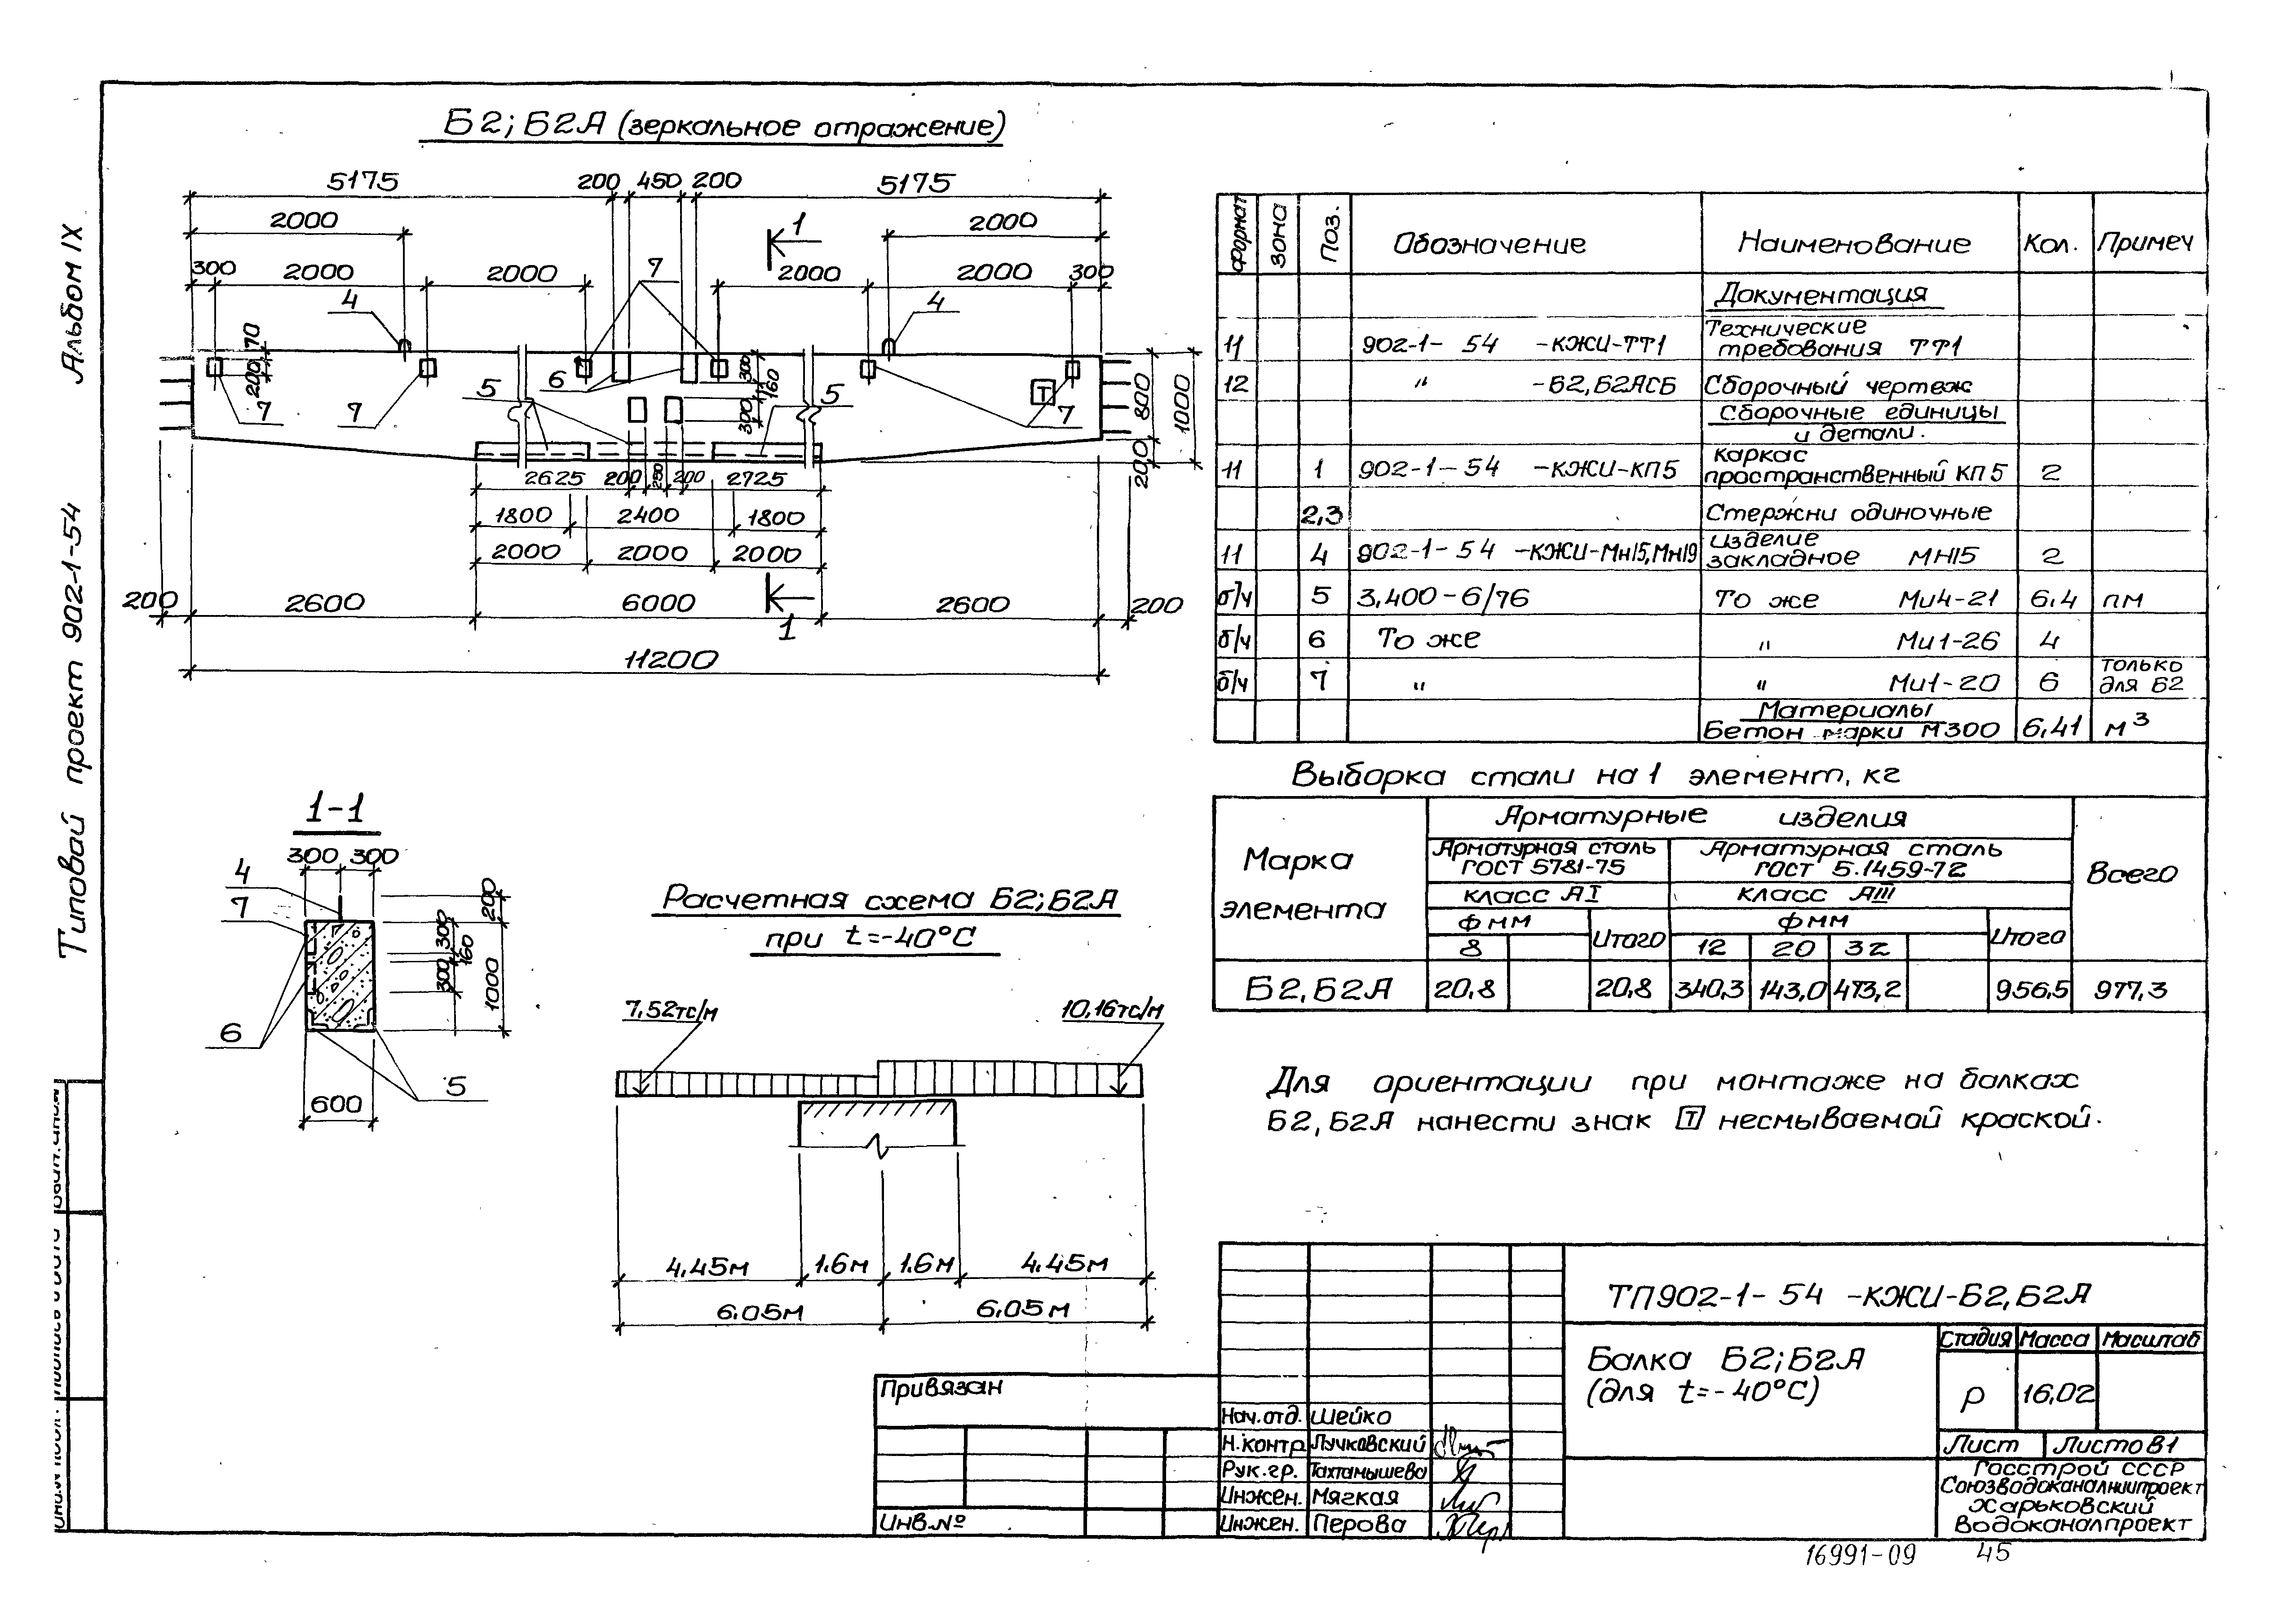 Альбом IX
Типовой проект 902-1-54
Б2; Б2А (зеркальное отражение)
5175 200 450 200 5175
2000 2000
1
300 2000 2000 7 2000 2000 300
4 4
70
200
5 6 5
300
160
300
Т
800
1000
200
7 7 7
2625 200 250 200 2725
1800 2400 1800
2000 2000 2000
200 2600 6000 2600 200
1
11200
Формат Зона Поз. Обозначение Наименование Кол. Примеч
Документация
11 902-1- 54 -КЖИ-ТТ1 Технические требования ТТ1
12 " -Б2,Б2АСБ Сборочный чертеж
Сборочные единицы
и детали.
11 1 902-1-54 -КЖИ-КП5 каркас пространственный КП5 2
2,3 Стержни одиночные
11 4 902-1-54 -КЖИ-Мн15,Мн19 изделие закладное МН15 2
б/ч 5 3,400-6/76 То же Ми4-21 6,4 пм
б/ч 6 То же " Ми1-26 4
б/ч 7 " " Ми1-20 6 только для Б2
Материалы
Бетон марки М300 6,41 м³
Выборка стали на 1 элемент, кг
Марка элемента
Арматурные изделия
Всего
Арматурная сталь ГОСТ 5781-75
Арматурная сталь ГОСТ 5.1459-72
класс АI класс АIII
Ф мм Итого Ф мм Итого
8 12 20 32
Б2,Б2А 20,8 20,8 340,3 143,0 473,2 956,5 977,3
1-1
300 300
4
7
200
300
160
300
1000
6
5
600
Расчетная схема Б2;Б2А
при t=-40°С
7,52тс/м 10,16тс/м
4,45м 1.6м 1.6м 4,45м
6,05м 6,05м
Для ориентации при монтаже на балках
Б2,Б2А нанести знак Т несмываемой краской.
ТП902-1- 54 -КЖИ-Б2,Б2А
Балка Б2;Б2А
(для t=-40°С)
Стадия Масса Масштаб
Р 16,02
Лист Листов 1
Госстрой СССР
Союзводоканалниипроект
Харьковский
Водоканалпроект
Привязан
Инв.№
Нач.отд. Шейко
Н.контр Лучковский
Рук.гр. Тахтамышева
Инжен. Мягкая
Инжен. Перова
16991-09 45